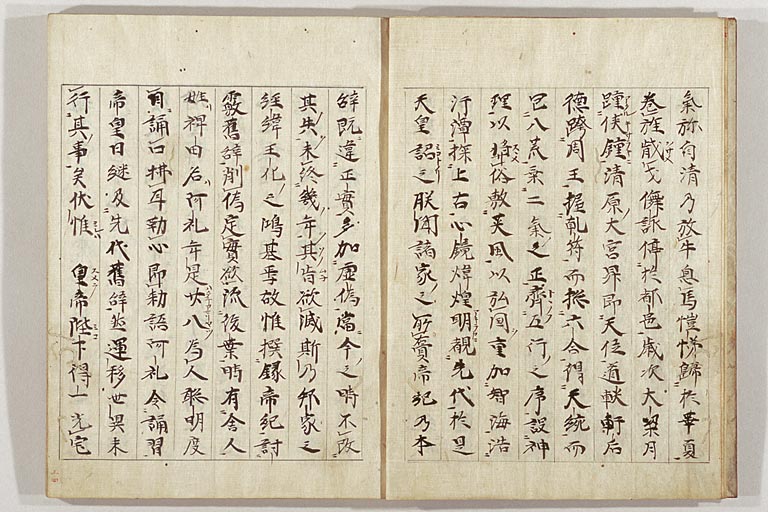 氣祢自清乃放牛息馬愷悌歸於華夏
卷旌戢戈儛詠停於都邑歳次大梁月
踵侠鐘清原大宮昇即天位道軼軒后
德跨周王握乹符而揔六合得天統而
包八荒乗二氣之正齊五行之序設神
理以奨俗敷英風以弘囯重加智海浩
汗潭探上古心鏡煒煌明覩先代於是
天皇詔之朕聞諸家之所賷帝紀乃本
辞既違正實多加虚偽當今之時不改
其失未終幾年其旨欲滅斯乃邦家之
経緯王化之鴻基焉故惟撰録帝紀討
覈舊辞削偽定實欲流後葉時有舎人
姓稗田名阿礼年是廿八為人聡明度
目誦口拂耳勒心即勅語阿礼令誦習
帝皇日継及先代舊辞然運移世異未
行其事矣伏惟　皇帝陛下得一光宅